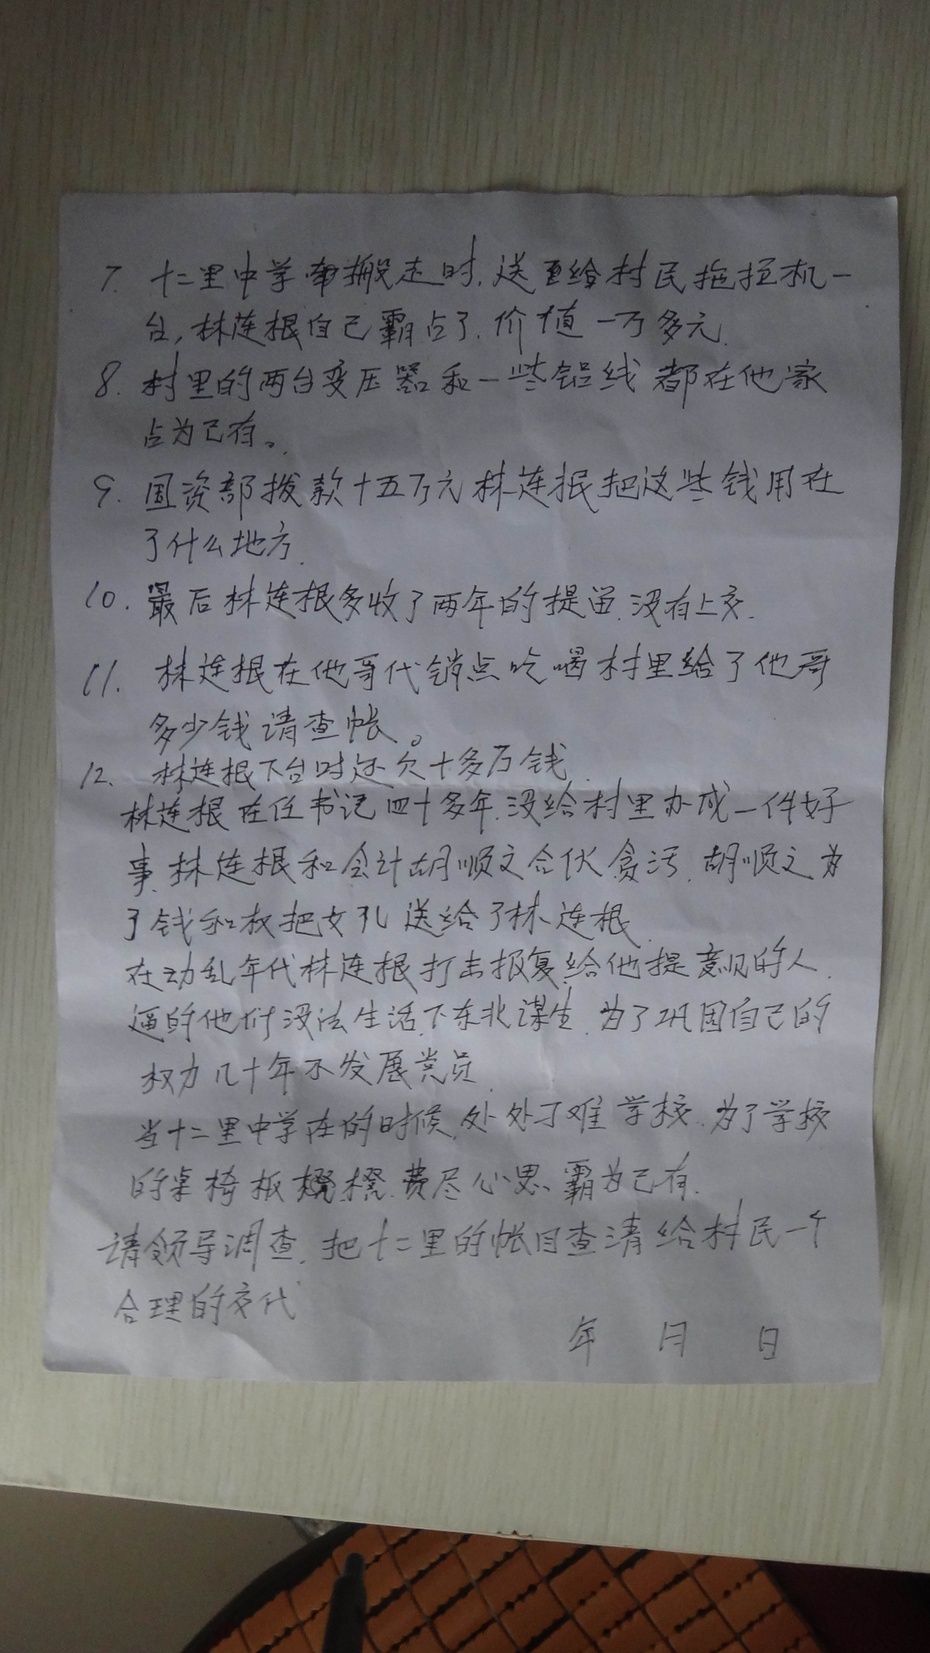 7. 十二里中学搬走时,送给村民拖拉机一
台,林连根自己霸占了.价值一万多元.
8. 村里的两台变压器和一些铝线都在他家
占为己有。
9. 国资部拨款十五万元林连根把这些钱用在
了什么地方.
10. 最后林连根多收了两年的提留.没有上交.
11. 林连根在他哥代销点吃喝村里给了他哥
多少钱请查帐。
12. 林连根下台时还欠十多万钱.
林连根在任书记四十多年.没给村里办成一件好
事.林连根和会计胡顺文合伙贪污.胡顺文为
了钱和权把女儿送给了林连根.
在动乱年代林连根打击报复给他提意见的人.
逼的他们没法生活下东北谋生.为了巩固自己的
权力几十年不发展党员.
当十二里中学在的时候.处处刁难学校.为了学校
的桌椅板凳.费尽心思.霸为己有.
请领导调查.把十二里的帐目查清给村民一个
合理的交代
年 月 日